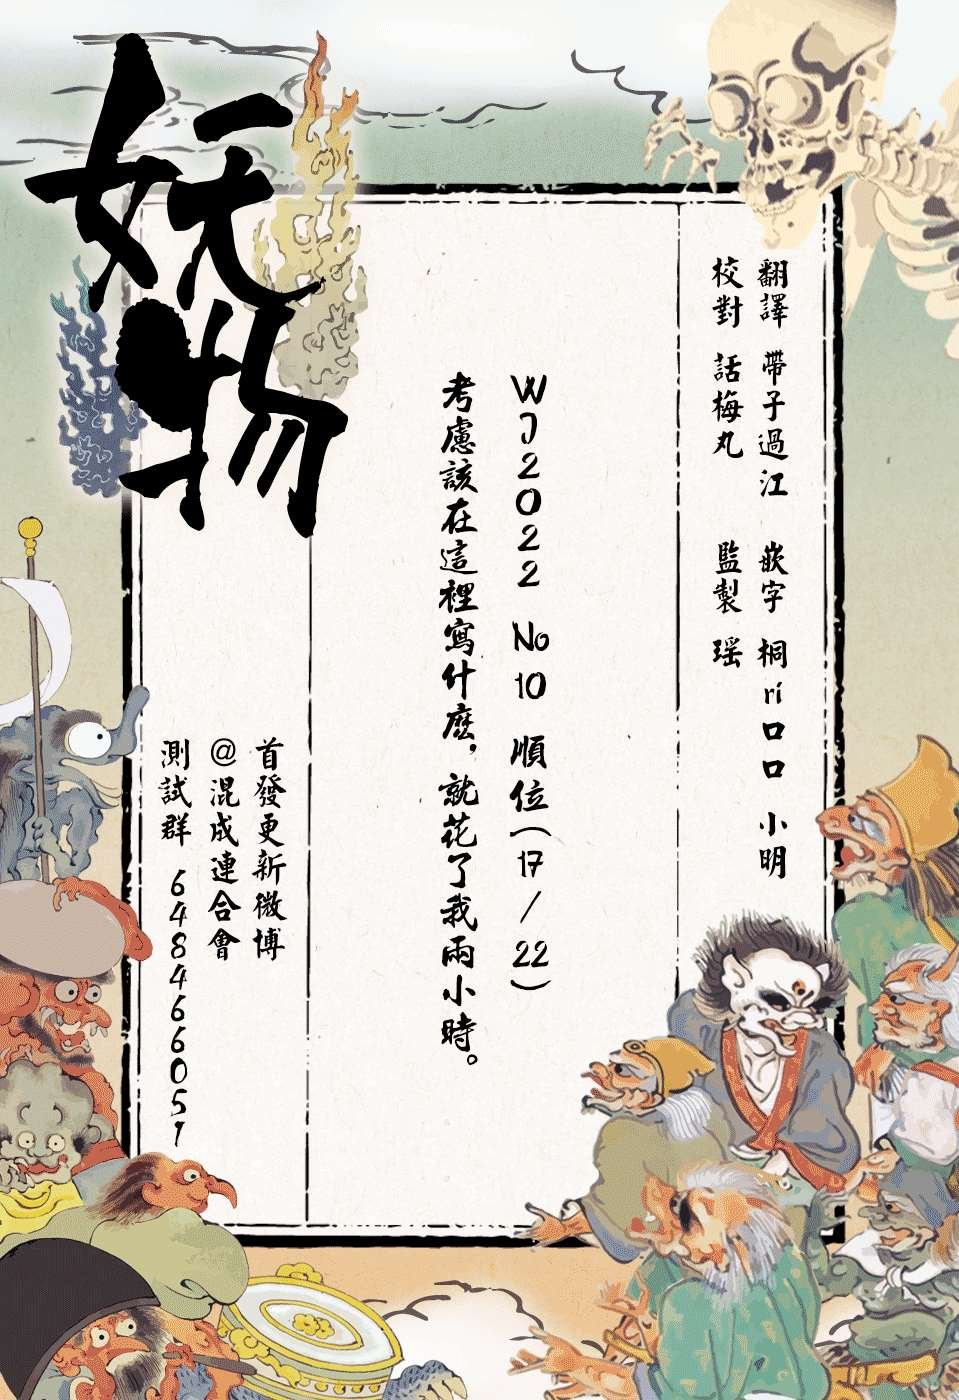 妖物
翻譯 帶子過江 嵌字 桐ri口口 小明
校對 話梅丸 監製 瑶
WJ2022 No10 順位(17/22)
考慮該在這裡寫什麼，就花了我兩小時。
首發更新微博
@混成連合會
測試群 648466051